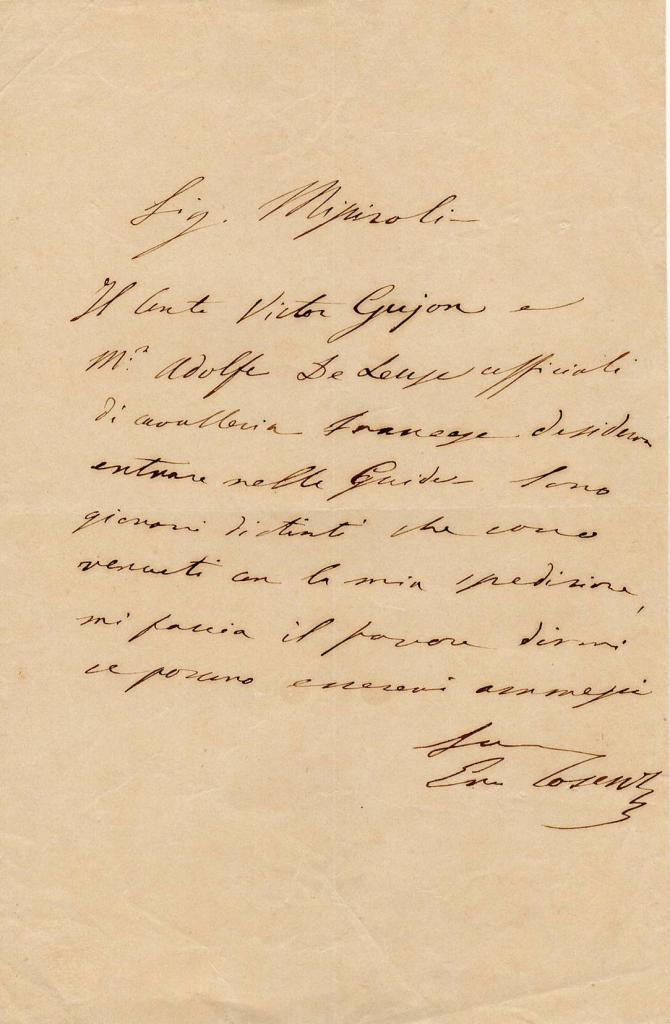 Sig. Missiroli
Il Conte Victor Gujon e
M.r Adolfe De Leuse ufficiali
di cavalleria francese desideran
entrare nelle Guide – Sono
giovani distinti che sono
venuti con la mia spedizione,
mi faccia il favore dirmi
se possano esservi ammessi
Suo
Enr Cosenz